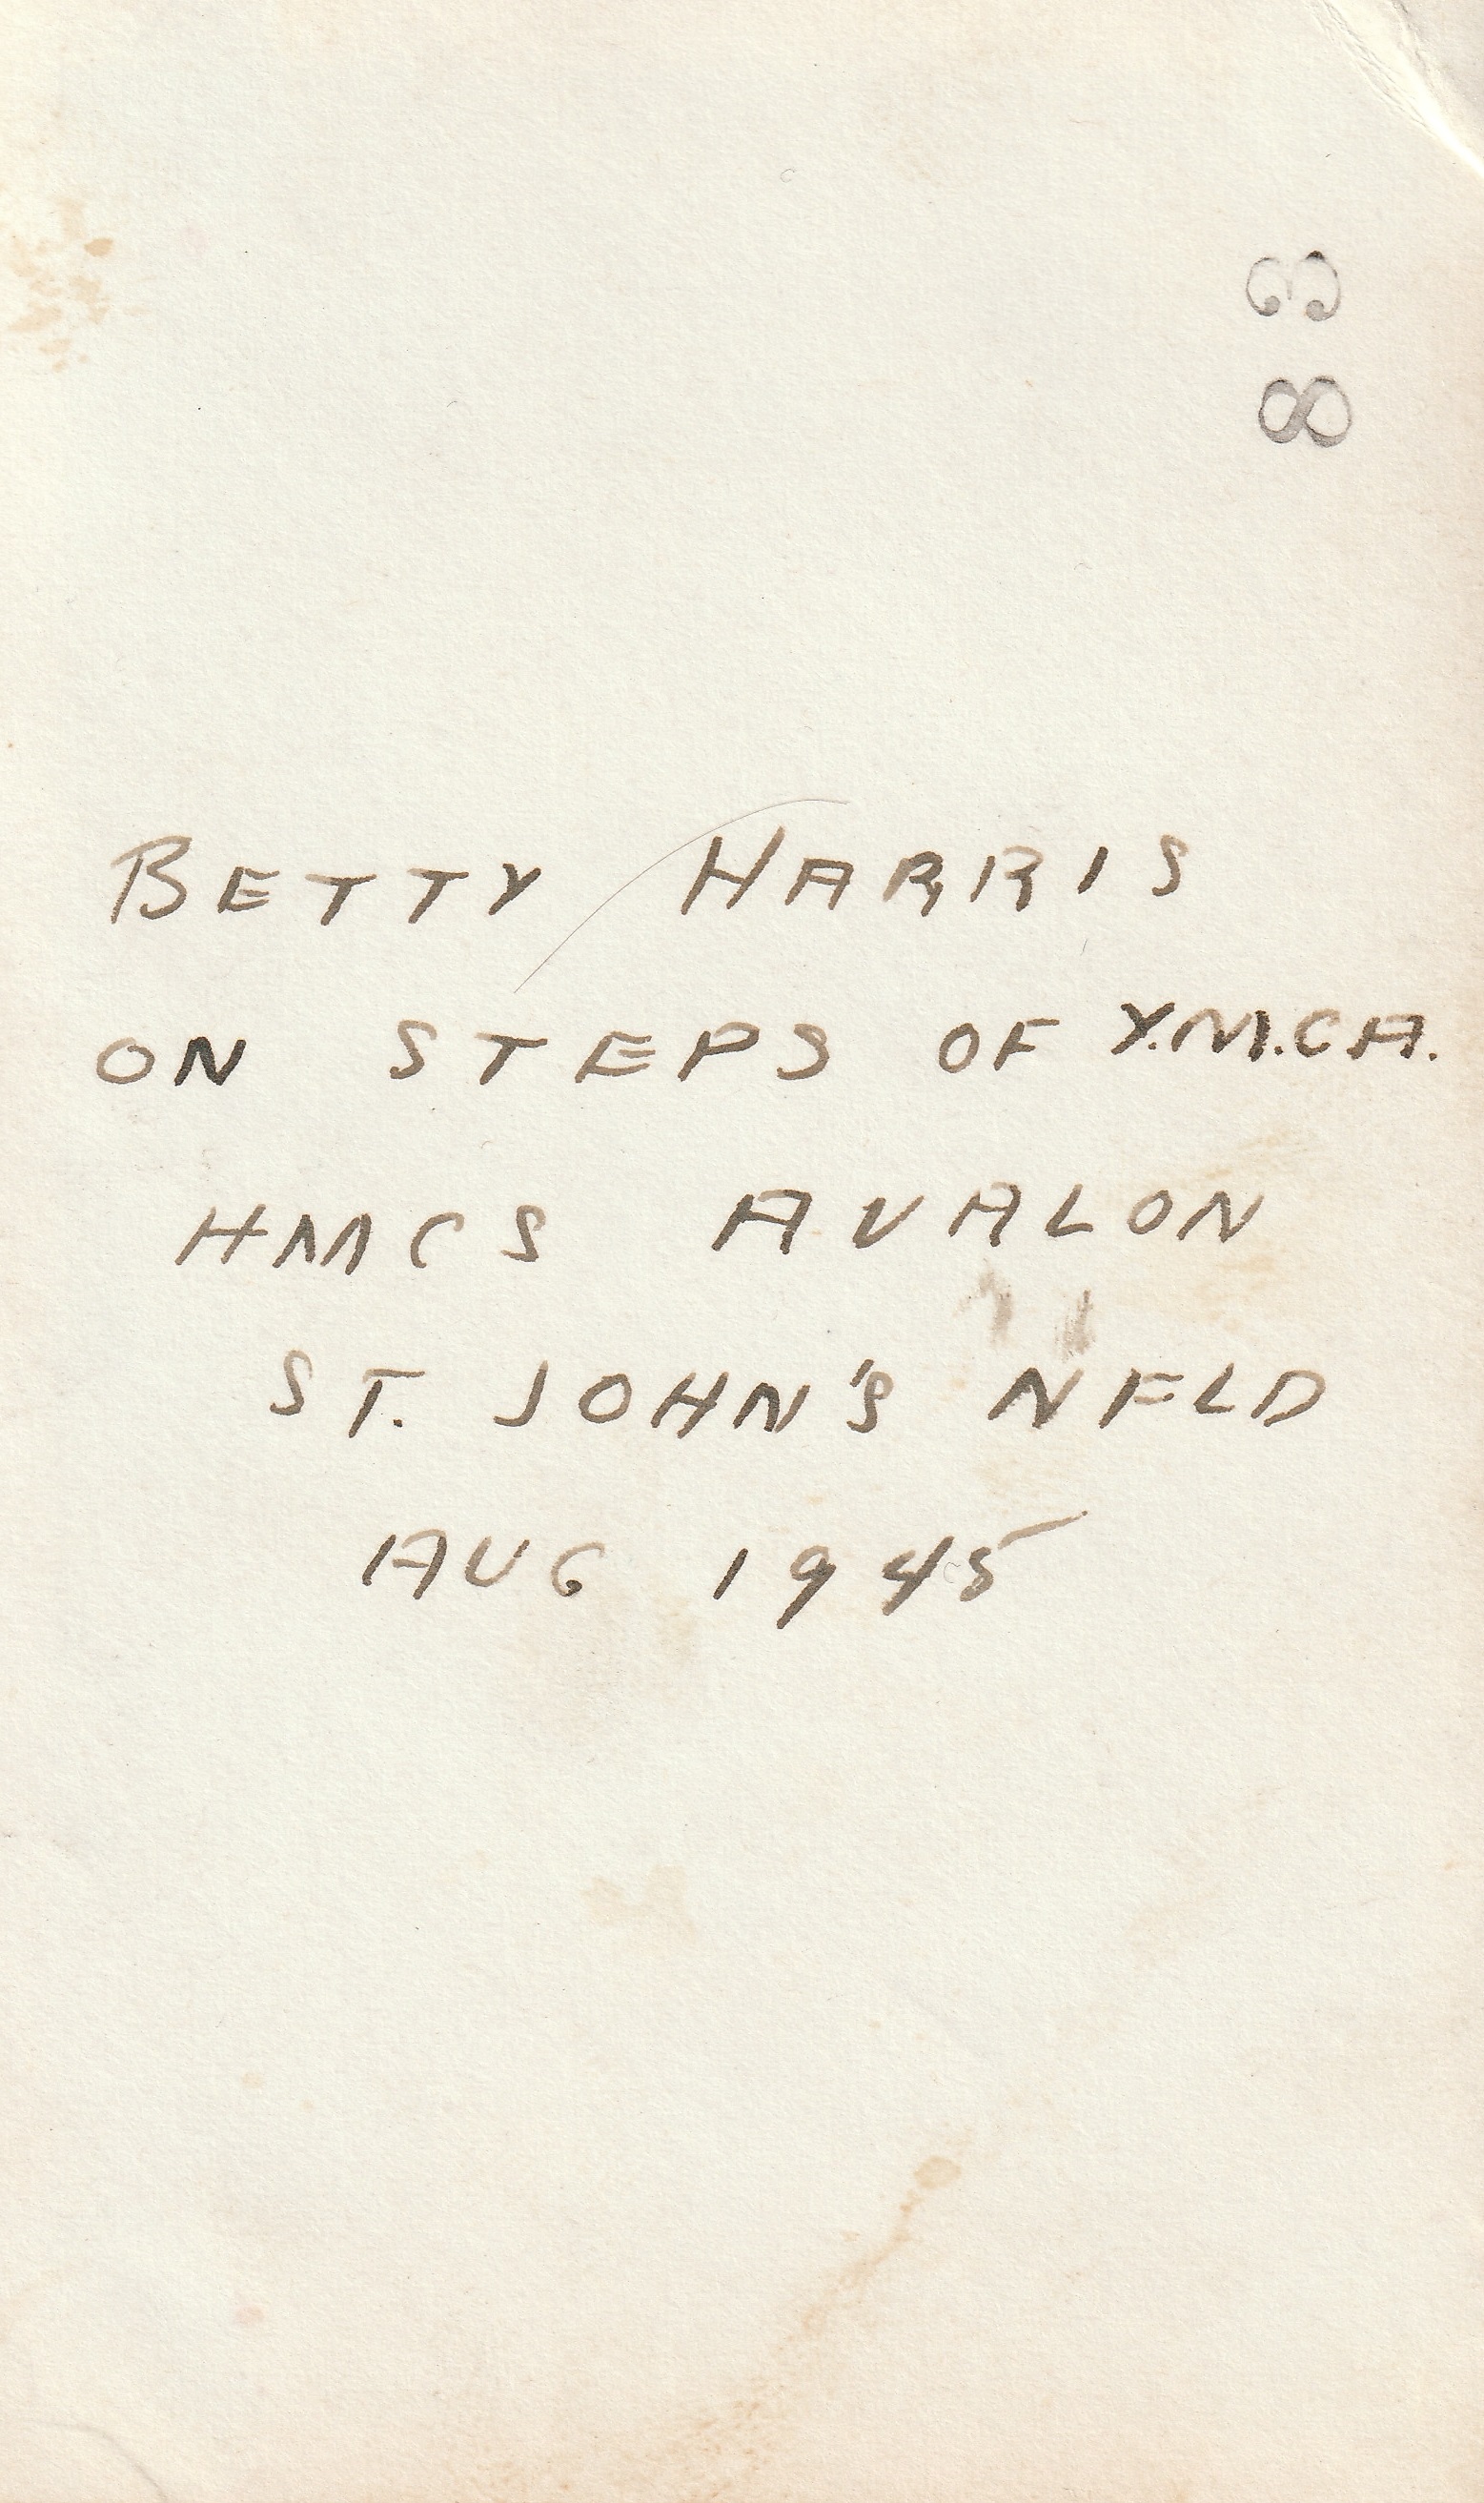 83
BETTY HARRIS
ON STEPS OF Y.M.C.A.
HMCS AVALON
ST. JOHN'S NFLD
AUG 1945